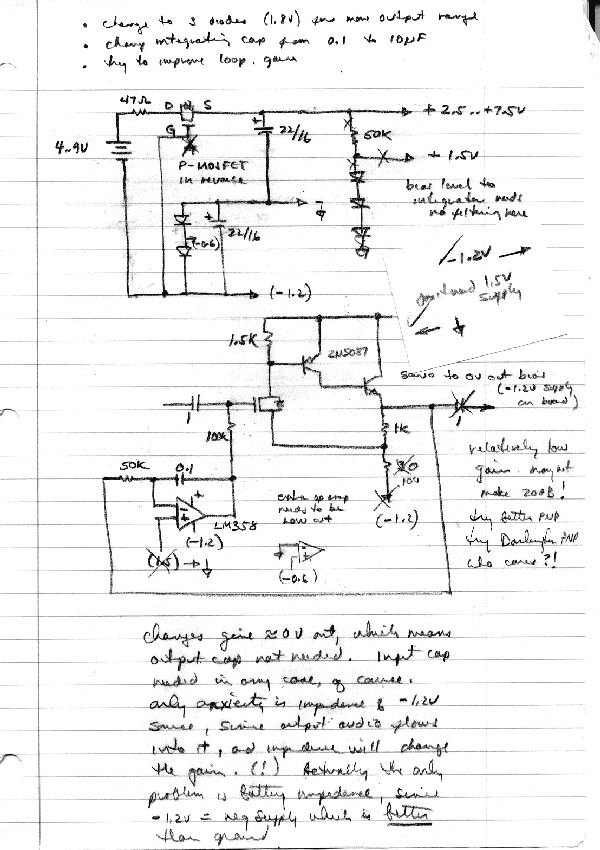 • change to 3 diodes (1.8V) for more output range
• change integrating cap from 0.1 to 10µF
• try to improve loop gain
47Ω D S + 2.5..+7.5V
G 22/16 50K
4-9V + 1.5V
P-MOSFET
in reverse
bias level to
integrator needs
no filtering here
22/16
(-0.6)
-1.2V
1.5V
supply
(-1.2)
1.5K
2N5087
servo to 0V out bias
(-1.2V supply
on board)
1 1
100K 1K
relatively low
gain. may not
make 20dB!
50K 0.1
100
needs to be
(-1.2)
try better PNP
LM358
try Darlington PNP
(-1.2)
(1.5) → (-0.6)
who cares?!
changes give ≈ 0V out, which means
output cap not needed. Input cap
needed in any case, of course.
only anxiety is impedance of -1.2V
source, since output audio flows
into it, and impedance will change
the gain. (!) Actually the only
problem is battery impedance, since
-1.2V = neg supply which is better
than ground